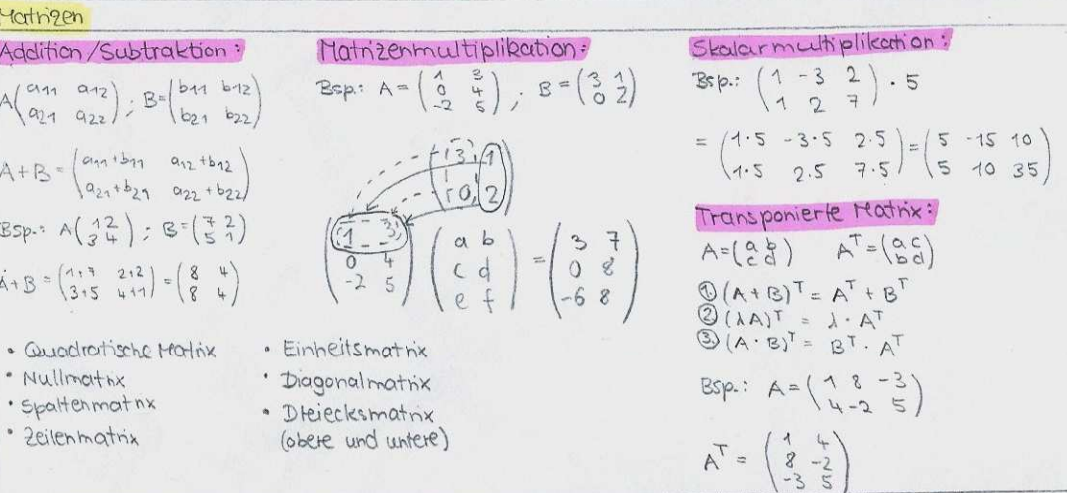 Matrizen
Addition/Subtraktion:
A(a11 a12
a21 a22) ; B=(b11 b12
b21 b22)
A+B = (a11+b11 a12+b12
a21+b21 a22+b22)
BSP.: A(1 2
3 4) ; B=(7 2
5 1)
A+B = (1+7 2+2
3+5 4+1) = (8 4
8 4)
• Quadratische Matrix
• Nullmatrix
• Spaltenmatrix
• Zeilenmatrix
Matrizenmultiplikation:
Bsp.: A = (1 3
0 4
-2 5) ; B = (3 1
0 2)
(3 1
0 2)
(1 3
0 4
-2 5) (a b
c d
e f) = (3 7
0 8
-6 8)
• Einheitsmatrix
• Diagonalmatrix
• Dreiecksmatrix
(obere und untere)
Skalarmultiplikation:
Bsp.: (1 -3 2
1 2 7) · 5
= (1·5 -3·5 2·5
1·5 2·5 7·5) = (5 -15 10
5 10 35)
Transponierte Matrix:
A=(a b
c d) Aᵀ=(a c
b d)
① (A+B)ᵀ = Aᵀ + Bᵀ
② (λA)ᵀ = λ · Aᵀ
③ (A·B)ᵀ = Bᵀ · Aᵀ
Bsp.: A = (1 8 -3
4 -2 5)
Aᵀ = (1 4
8 -2
-3 5)